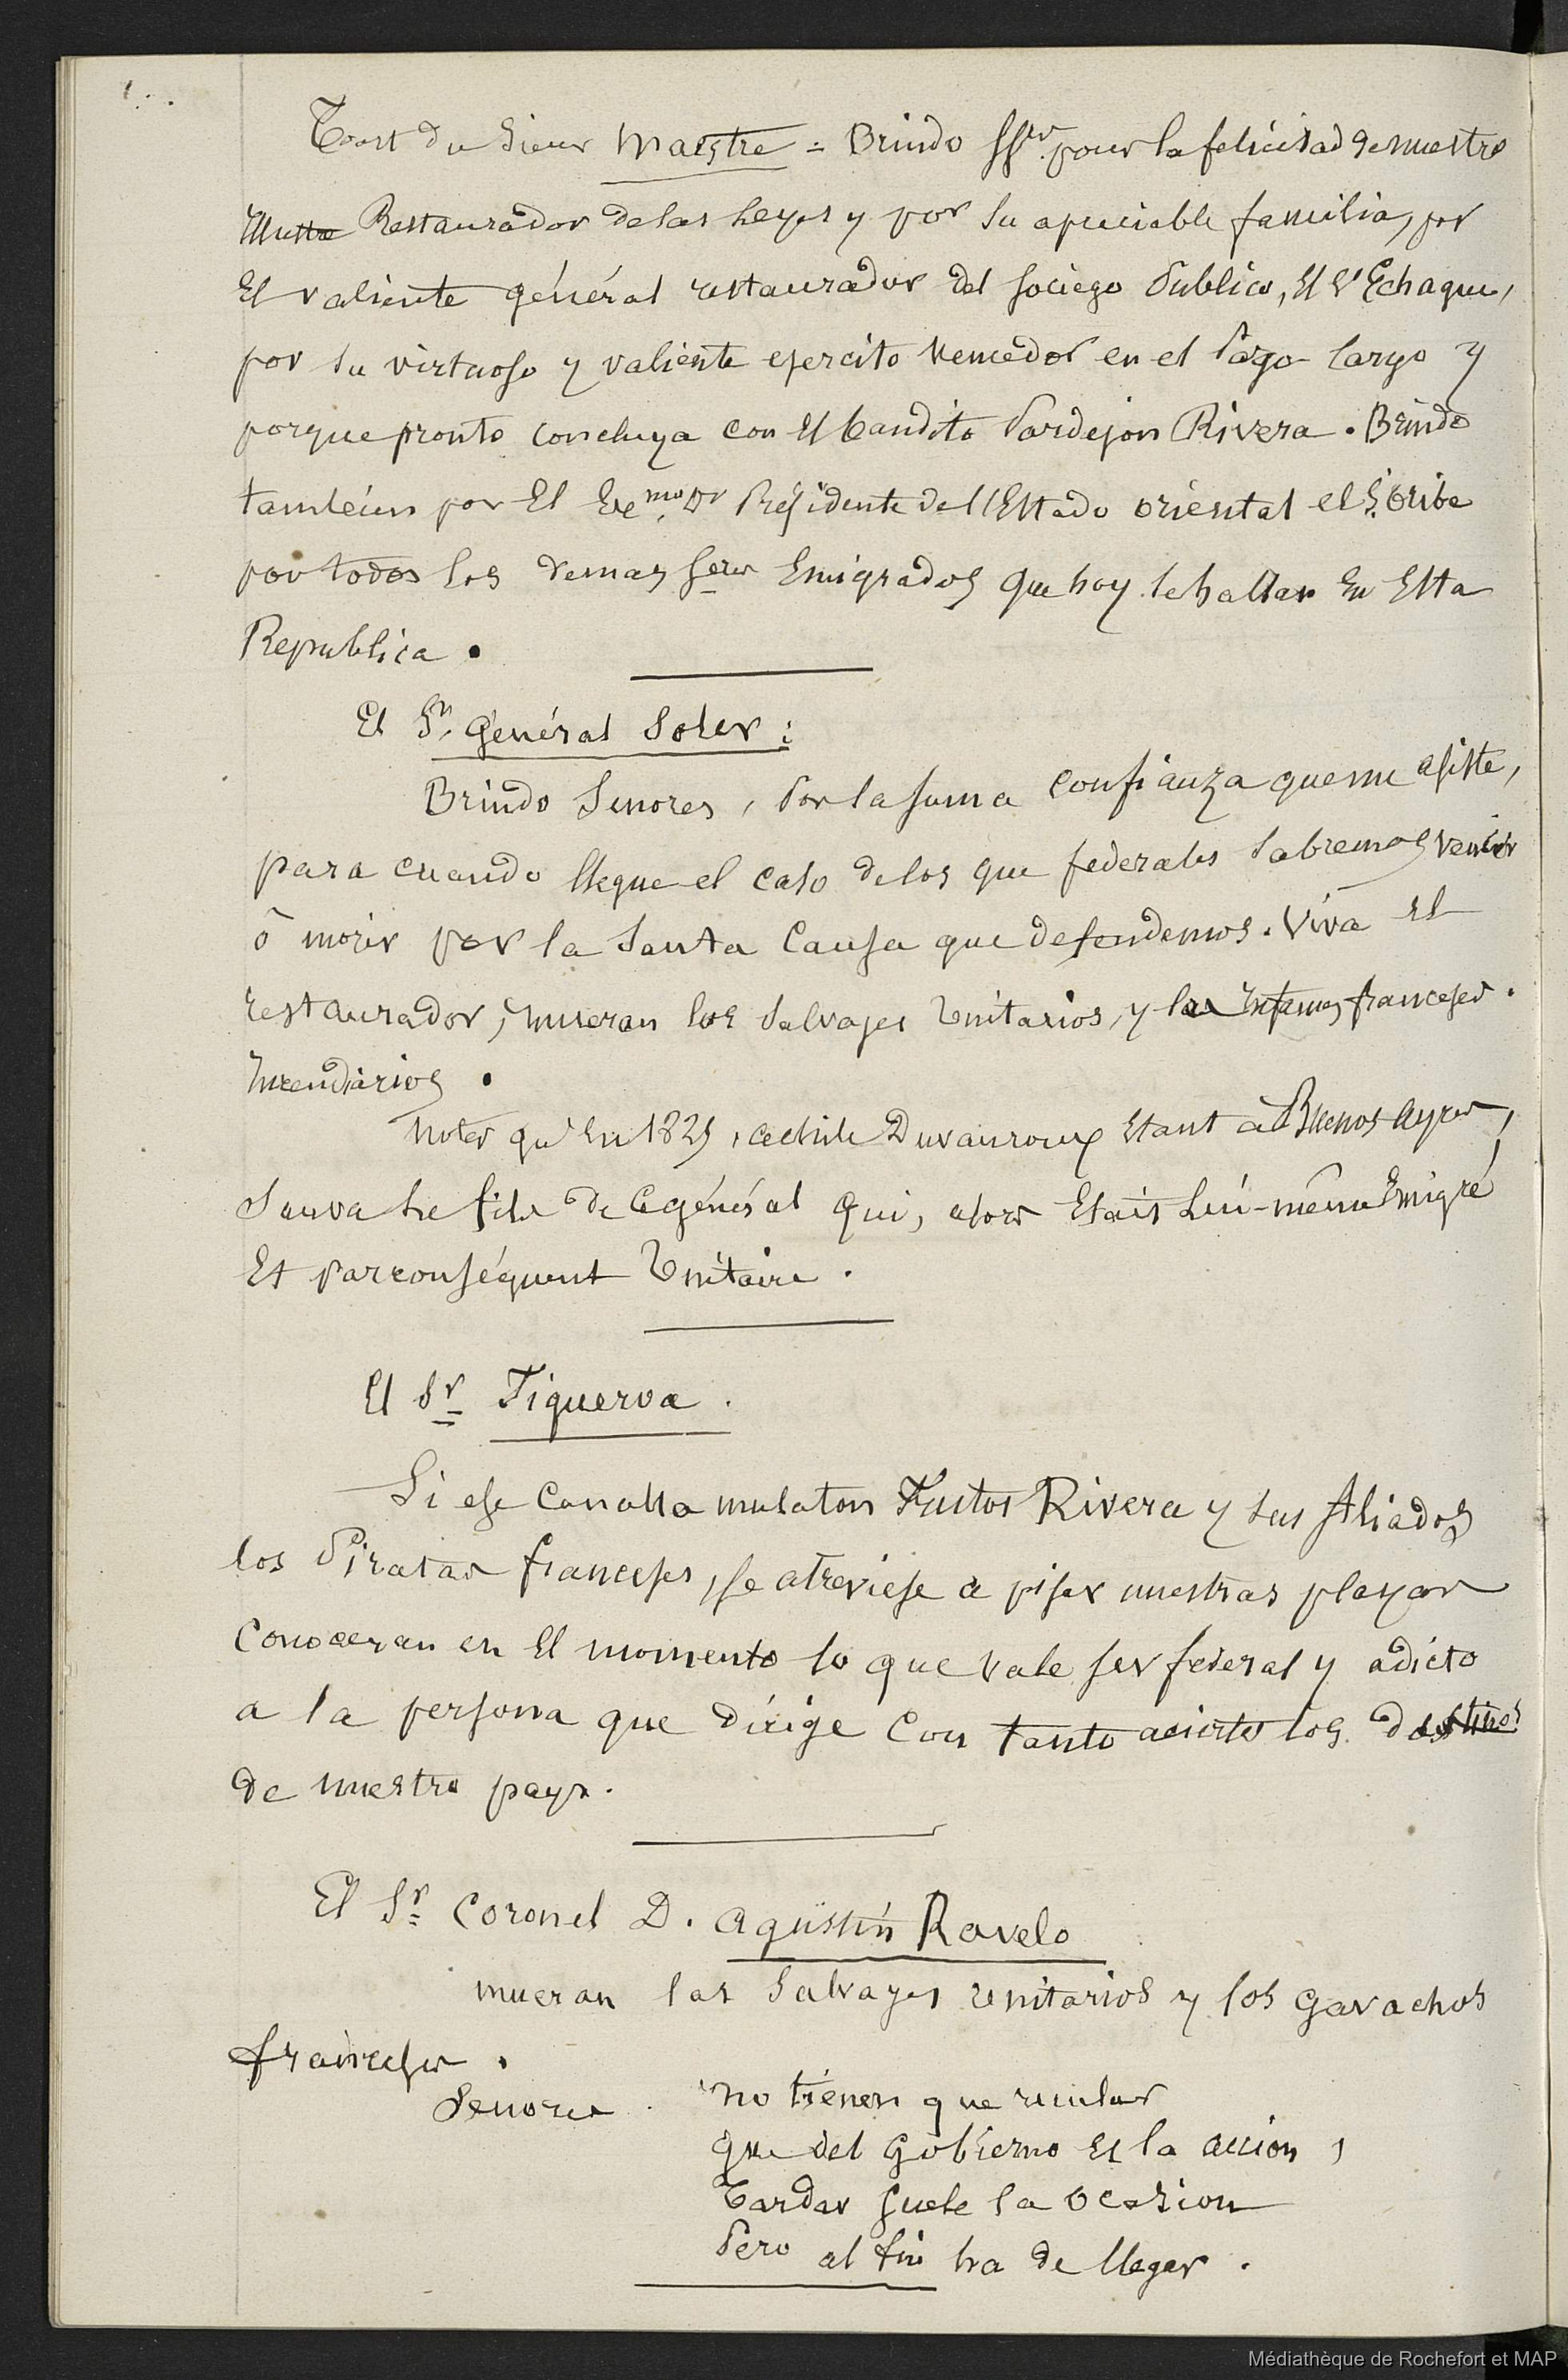 Toast du Sieur Maestre = Brindo SSres. pour la felicidad de nuestro
Illustre Restaurador de las Leyes y por su apreciable familia, por
El valiente général restaurador del sociego Publico, El Sr Echague,
por su virtuoso y valiente ejercito vencedor en el Pago-largo y
porque pronto concluya con El bandito Pardejon Rivera. Brindo
tambien por El Exmo. Sr Président del Estado oriental el S. Oribe
por todos los demas Seres Emigrados que hoy se hallan En Esta
Republica.
El Sr. Général Soler :
Brindo Senores, Por la suma confianza que me asiste,
para cuando llegue el caso de los que federales sabremos vencer
ô morir por la Santa Causa que defendemos. Viva El
restaurador, mueran los Salvajes Unitarios, y los Infames franceses
Incendiarios.
noter qu'En 1829, Duvauroux Etant à Buenos-Ayres,
Sauva le fils de Ce général qui, alors Etait Lui-même Emigré
Et par conséquent Unitaire.
El Sr Figuerva.
Si ese Canalla mulaton Frutos Rivera y sus Aliados
los Piratas franceses, se atreviese a pisar nuestras playas
Conoceran en El momento lo que vale ser federal y adicto
a la persona que dirige Con tanto acierto los destinos
de nuestro pays.
El Sr Coronel D. Agustín Ravelo
mueran los Salvages Unitarios y los gavachos
franceses.
Senores. no tienen que recular
que del Gobierno Es la accion,
Tardar suele la ocasion
Pero al fin ha de llegar.
Médiathèque de Rochefort et MAP